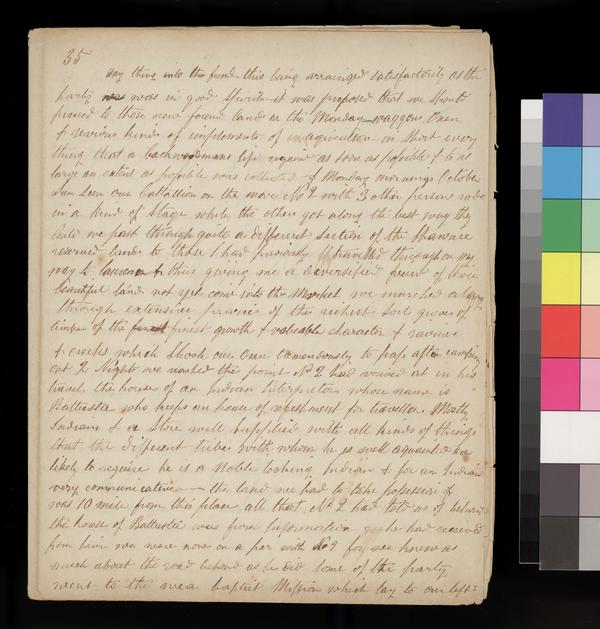 35
any thing into the fund this being arrainged satisfactorily as the
party was in good Spirits it was proposed that we should
proced to these new found lands on the Monday waggon Oxen
& various kinds of implements of agriculture in short every
thing that a backwoodmans life require as soon as possible & to as
large an extent as possible was collected & Monday mornings October
Sun Seen our battallion on the move No 2 with 3 other persons rode
in a kind of Stage while the others got along the best way they
could we past through quite a different section of the Shawnee
reserved lands to those I had previously travelled through on my
way to & thus giving me a diversified view of those
beautiful land not yet come into the Market we marched along
through extensive praries of the richest soil groves of
timber of the finest growth & valuable character & ravines
& creeks which Shook our oxen tremendously to pass after camping
out 2 Nights we reached the point No 2 had arrived at in his
travel the house of an Indian Interpreter whose name is
Battiester who keeps an house of refeshment for travellers Mostly
Indians & a Store well supplied with all kinds of things
that the different tribes with whom he is well aquainted are
likely to require he is a Noble looking Indian & for an Indian
very communicative the land we had to take possession of
was 10 miles from this place all that No 2 had told us of behind
the house of Battiester was from Information he had received
from him we were now on a par with No 2 for we knew as
much about the road beyond as he did some of the party
went to the mea baptist Mission which lay to our left